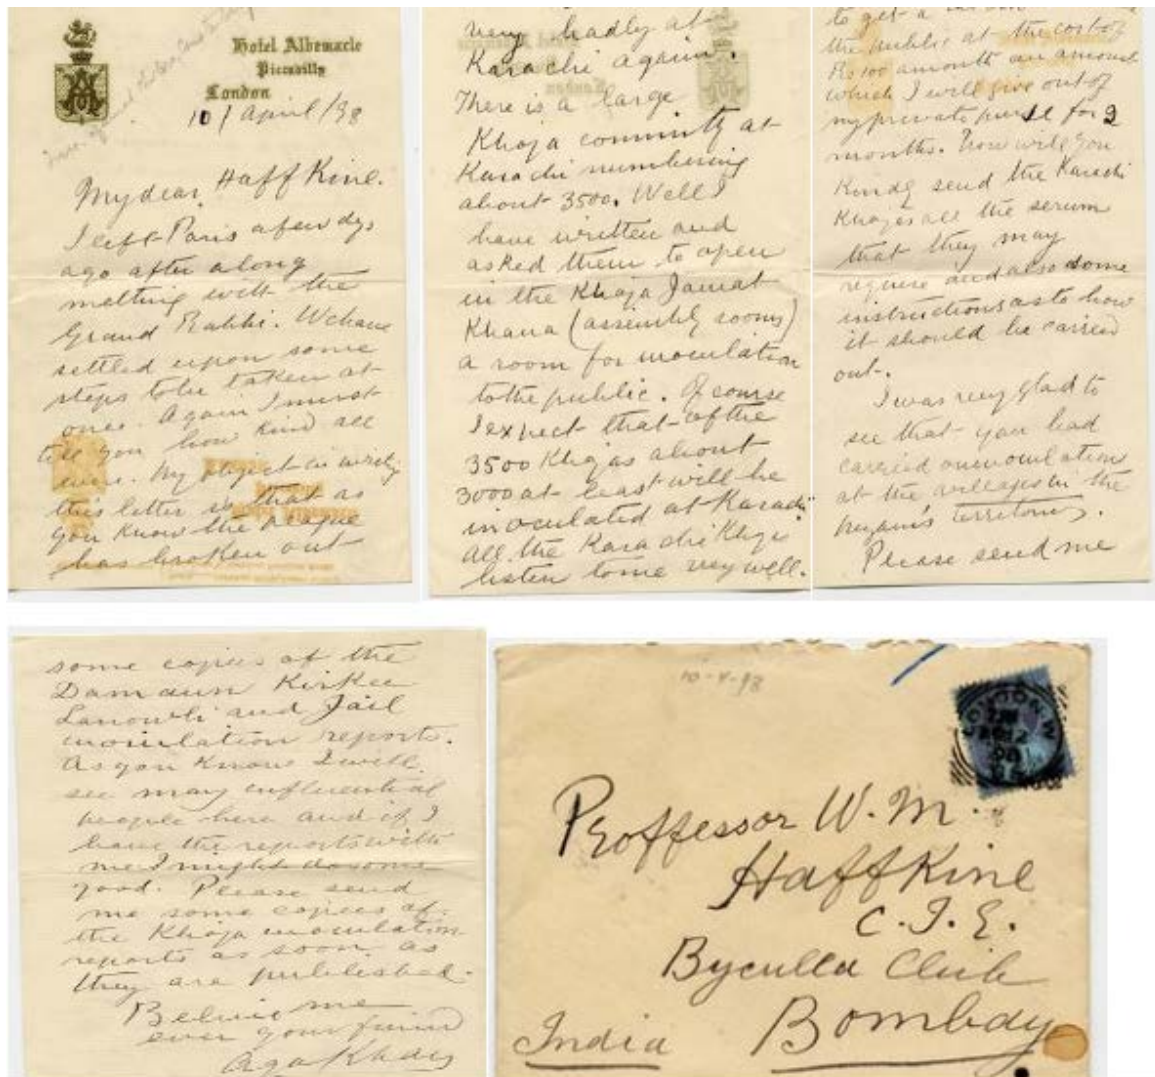 Hotel Albemarle
Piccadilly
London
10/April/98
My dear Haffkine.
I left Paris a few dys
ago after a long
meeting with the
Grand Rabbi. We have
settled upon some
steps to be taken at
once. Again I must
tell you how kind all
were. My object in writing
this letter is that as
you know the plague
has broken out
very badly at
Karachi again.
There is a large
Khoja community at
Karachi numbering
about 3500. Well I
have written and
asked them to open
in the Khoja Jamat
Khana (assembly rooms)
a room for inoculation
to the public. Of course
I expect that of the
3500 Khojas about
3000 at least will be
inoculated at Karachi
all the Karachi Khojas
listen to me very well.
to get a
the public at the cost of
Rs 100 a month an amount
which I will give out of
my private purse for 2
months. Now will you
kindly send the Karachi
Khojas all the serum
that they may
require and also some
instructions as to how
it should be carried
out.
I was very glad to
see that you had
carried on inoculation
at the villages in the
Nizam's territory.
Please send me
some copies of the
Damaun Kirkee
Lanowli and Jail
inoculation reports.
As you know I will
see many influential
people here and if I
have the reports with
me I might do some
good. Please send
me some copies of
the Khoja inoculation
reports as soon as
they are published.
Believe me
ever your friend
Aga Khan
10-4-98
Proffessor W. M.
Haffkine
C. I. E.
Byculla Club
Bombay
India